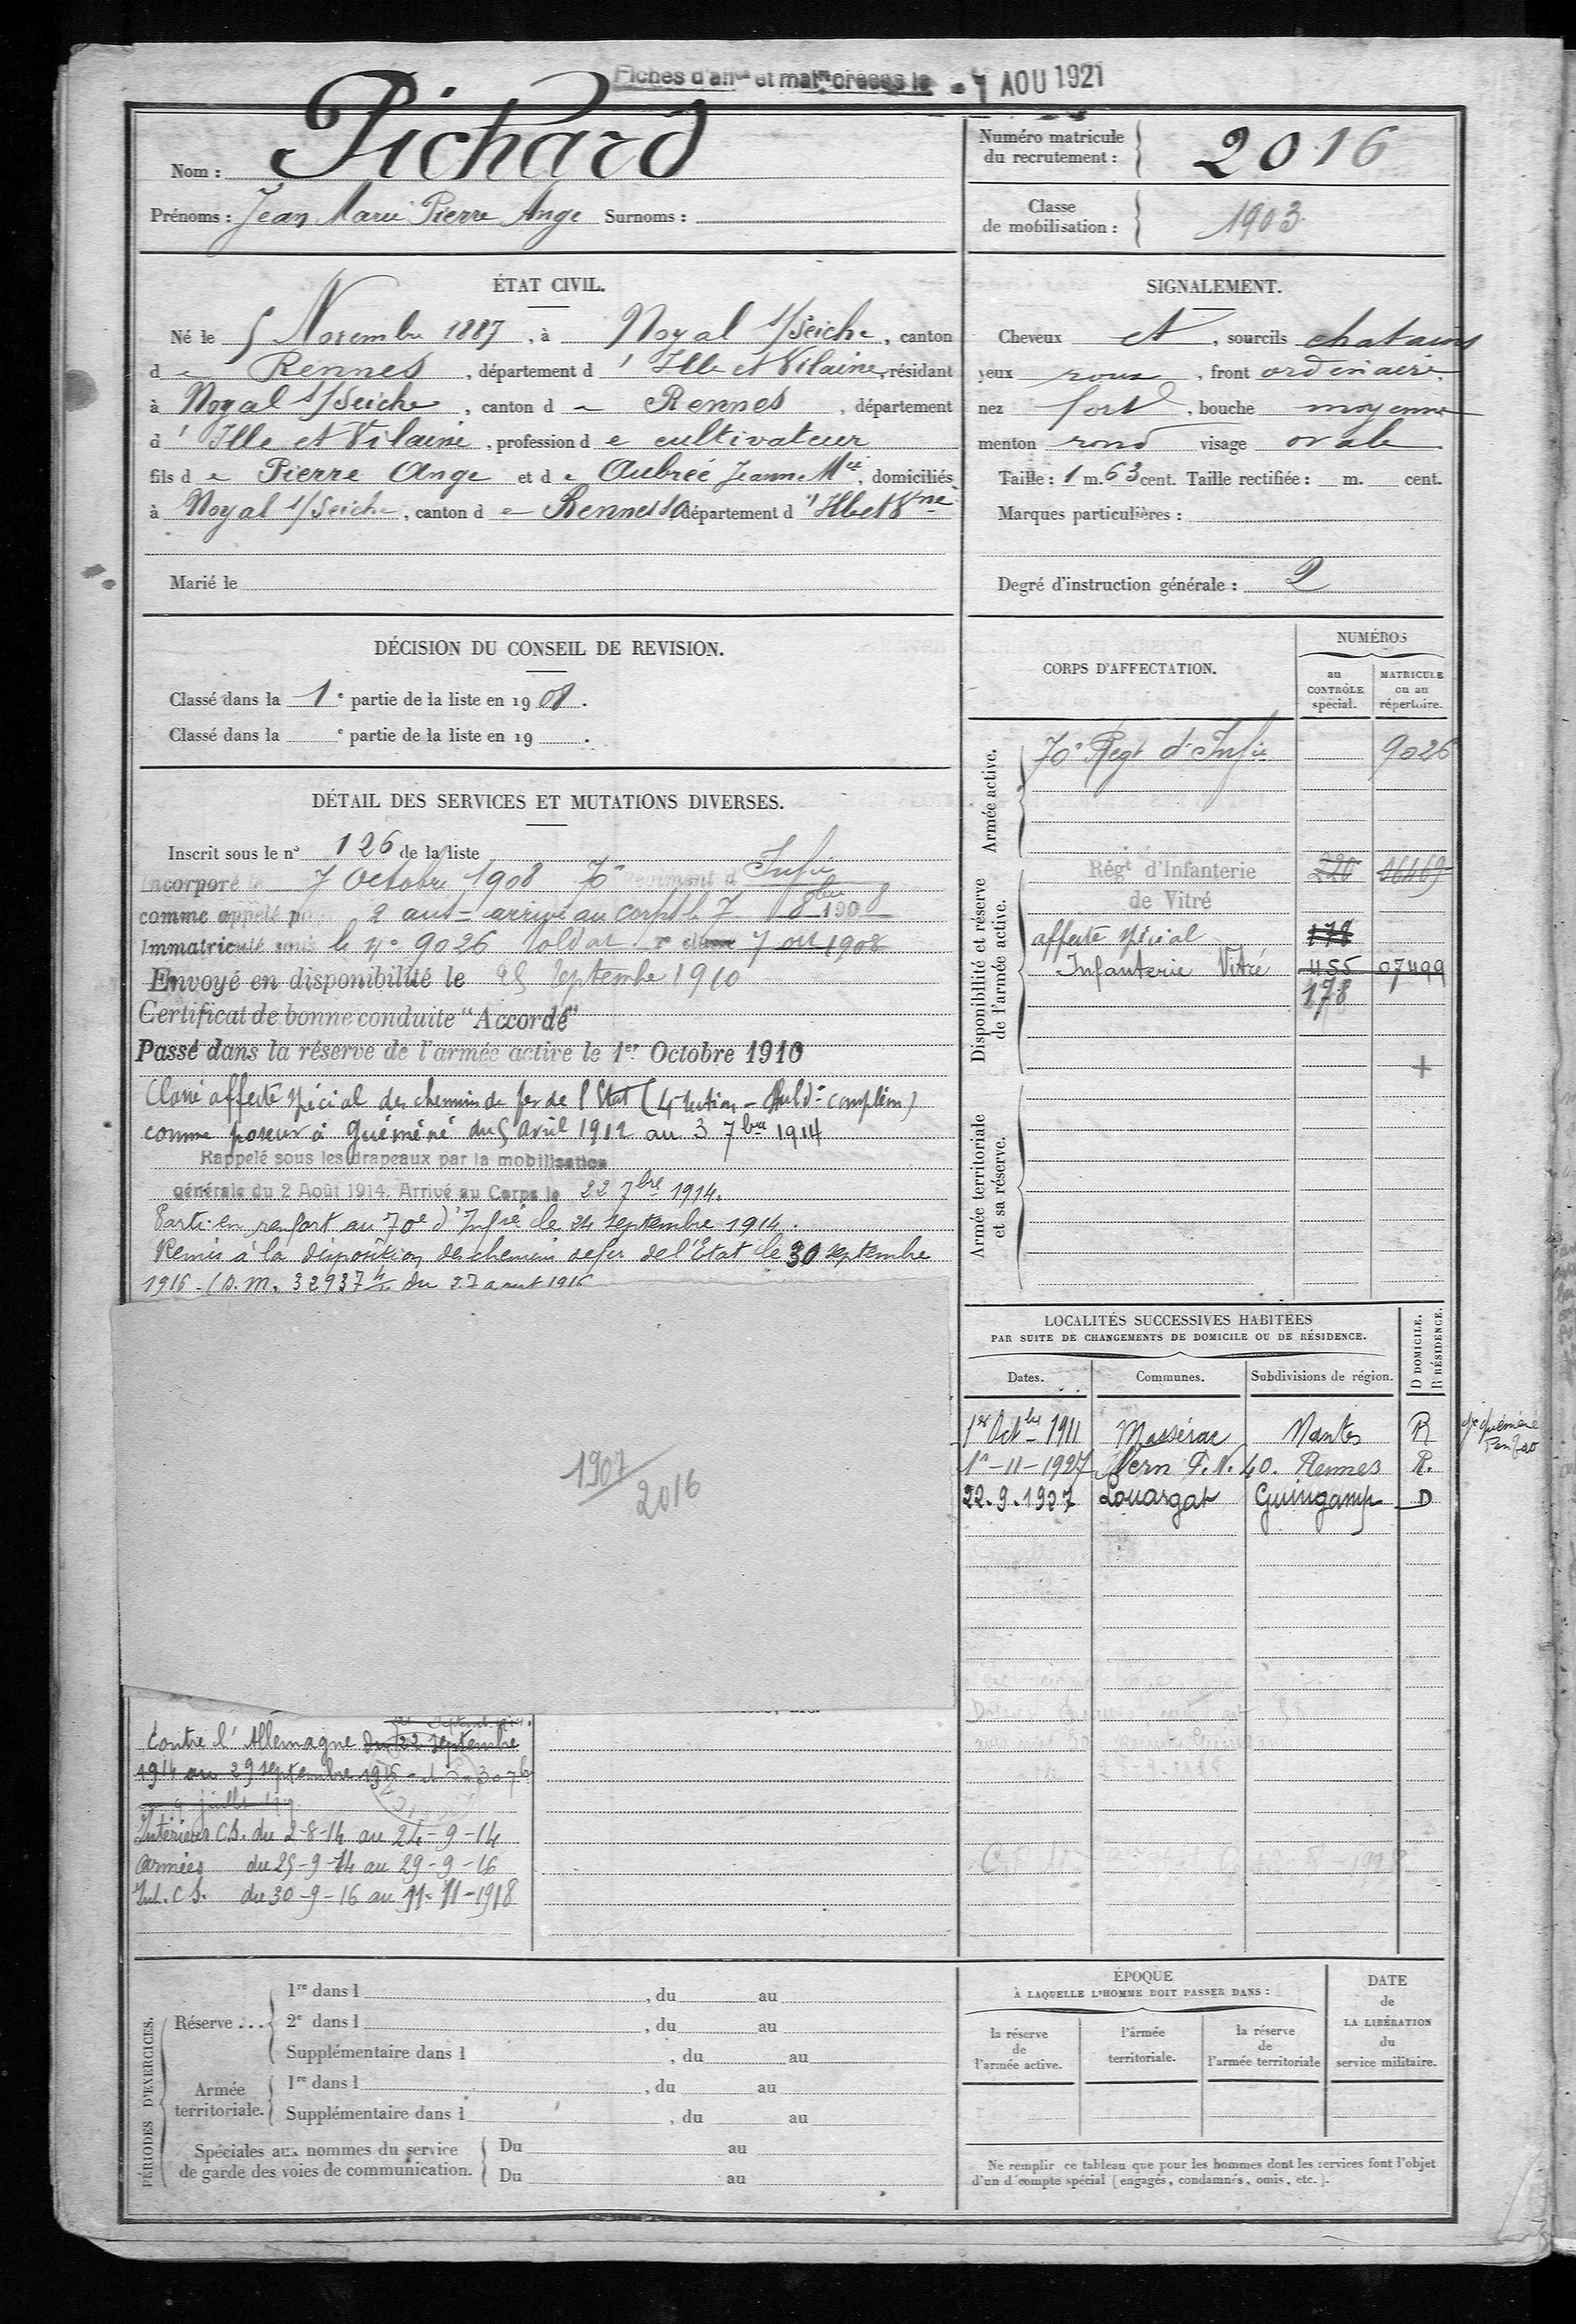 Fiches d'aff^on et mat^le créées le - 7 AOU 1921
Nom : Pichard
Prénoms : Jean Marie Pierre Ange Surnoms :
Numéro matricule du recrutement : 2016
Classe de mobilisation : 1903
ÉTAT CIVIL.
Né le 5 Novembre 1887, à Noyal s/Seiche, canton
de Rennes, département d'Ille et Vilaine, résidant
à Noyal s/Seiche, canton de Rennes, département
d'Ille et Vilaine, profession de cultivateur
fils de Pierre Ange et de Aubrée Jeanne Mie, domiciliés
à Noyal s/Seiche, canton de Rennes SO département d'Ille et Vne
Marié le
SIGNALEMENT.
Cheveux et, sourcils chatains
yeux roux, front ordinaire
nez fort, bouche moyenne
menton rond visage ovale
Taille : 1 m. 63 cent. Taille rectifiée : m. cent.
Marques particulières :
Degré d'instruction générale : 2
DÉCISION DU CONSEIL DE REVISION.
Classé dans la 1e partie de la liste en 1908.
Classé dans la e partie de la liste en 19 .
DÉTAIL DES SERVICES ET MUTATIONS DIVERSES.
Inscrit sous le n° 126 de la liste
Incorporé le 7 Octobre 1908 70e Régiment d'Infie
comme appelé p 2 ans - arrivé au corps le 7 8bre 1908
Immatriculé sous le n° 9026 Soldat 2e classe 7 oct 1908
Envoyé en disponibilité le 25 Septembre 1910
Certificat de bonne conduite "Accordé"
Passé dans la réserve de l'armée active le 1er Octobre 1910
Classé affecté spécial des chemins de fer de l'Etat (4e section - Subdon complém)
comme poseur à Guéméné du 5 avril 1912 au 3 7bre 1914
Rappelé sous les drapeaux par la mobilisation
générale du 2 Août 1914. Arrivé au Corps le 22 7bre 1914.
Parti en renfort au 70e d'Infie le 24 septembre 1914.
Remis à la disposition des chemins de fer de l'Etat le 30 septembre
1916. (D.M. 32937 du 27 août 1916
1907
2016
septemb. 1914.
Contre l'Allemagne du 22 septembre
1914 au 29 septembre 1916 - et du 30 7bre
au 9 juillet 1919
Intérieur C.S. du 2-8-14 au 24-9-14
Armées du 25-9-14 au 29-9-16
Int. C.S. du 30-9-16 au 11-11-1918
CORPS D'AFFECTATION.
NUMÉROS
au CONTRÔLE spécial.
MATRICULE ou au répertoire.
Armée active.
70e Regt d'Infie 9026
Disponibilité et réserve de l'armée active.
Régt d'Infanterie 220 16469
de Vitré
affecté spécial 178
Infanterie Vitré 455 07499
178
+
Armée territoriale et sa réserve.
LOCALITÉS SUCCESSIVES HABITÉES
PAR SUITE DE CHANGEMENTS DE DOMICILE OU DE RÉSIDENCE.
Dates. Communes. Subdivisions de région. D DOMICILE. R RÉSIDENCE.
1er Octbre 1911 Massérac Nantes R
Gie Guéméné Penfao
1er-11-1927 Vern P.N. 40. Rennes R.
22.9.1927 Louargat Guingamp D
PÉRIODES D'EXERCICES.
Réserve...
1re dans l , du au
2e dans l , du au
Supplémentaire dans l , du au
Armée territoriale.
1re dans l , du au
Supplémentaire dans l , du au
Spéciales aux hommes du service
de garde des voies de communication.
Du au
Du au
ÉPOQUE
À LAQUELLE L'HOMME DOIT PASSER DANS :
la réserve de l'armée active.
l'armée territoriale.
la réserve de l'armée territoriale
DATE de LA LIBÉRATION du service militaire.
Ne remplir ce tableau que pour les hommes dont les services font l'objet
d'un décompte spécial (engagés, condamnés, omis, etc.).